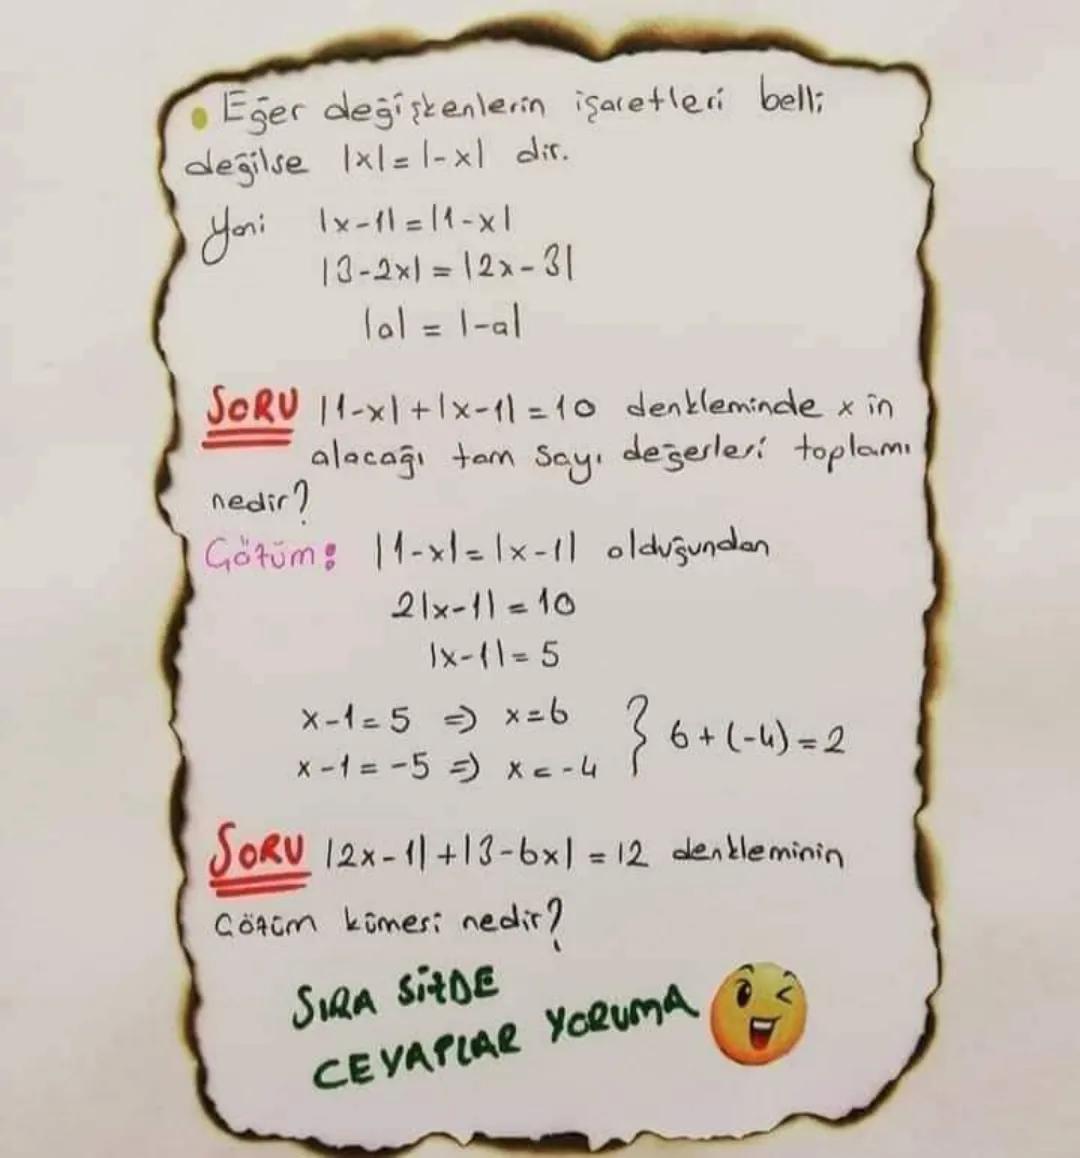 • Eğer değişkenlerin işaretleri belli
değilse |x|=|-x| dir.
Yani |x-1|=|1-x|
|3-2x|=|2x-3|
|a| = |-a|
SORU |1-x|+|x-1|=10 denkleminde x in
alacağı tam sayı değerleri toplamı
nedir?
Çözüm: |1-x|=|x-1| olduğundan
2|x-1|=10
|x-1|=5
x-1=5 ⇒ x=6
x-1=-5 ⇒ x=-4 } 6+(-4)=2
SORU |2x-1|+|3-6x|=12 denkleminin
çözüm kümesi nedir?
SIRA SİZDE
CEVAPLAR YORUMA